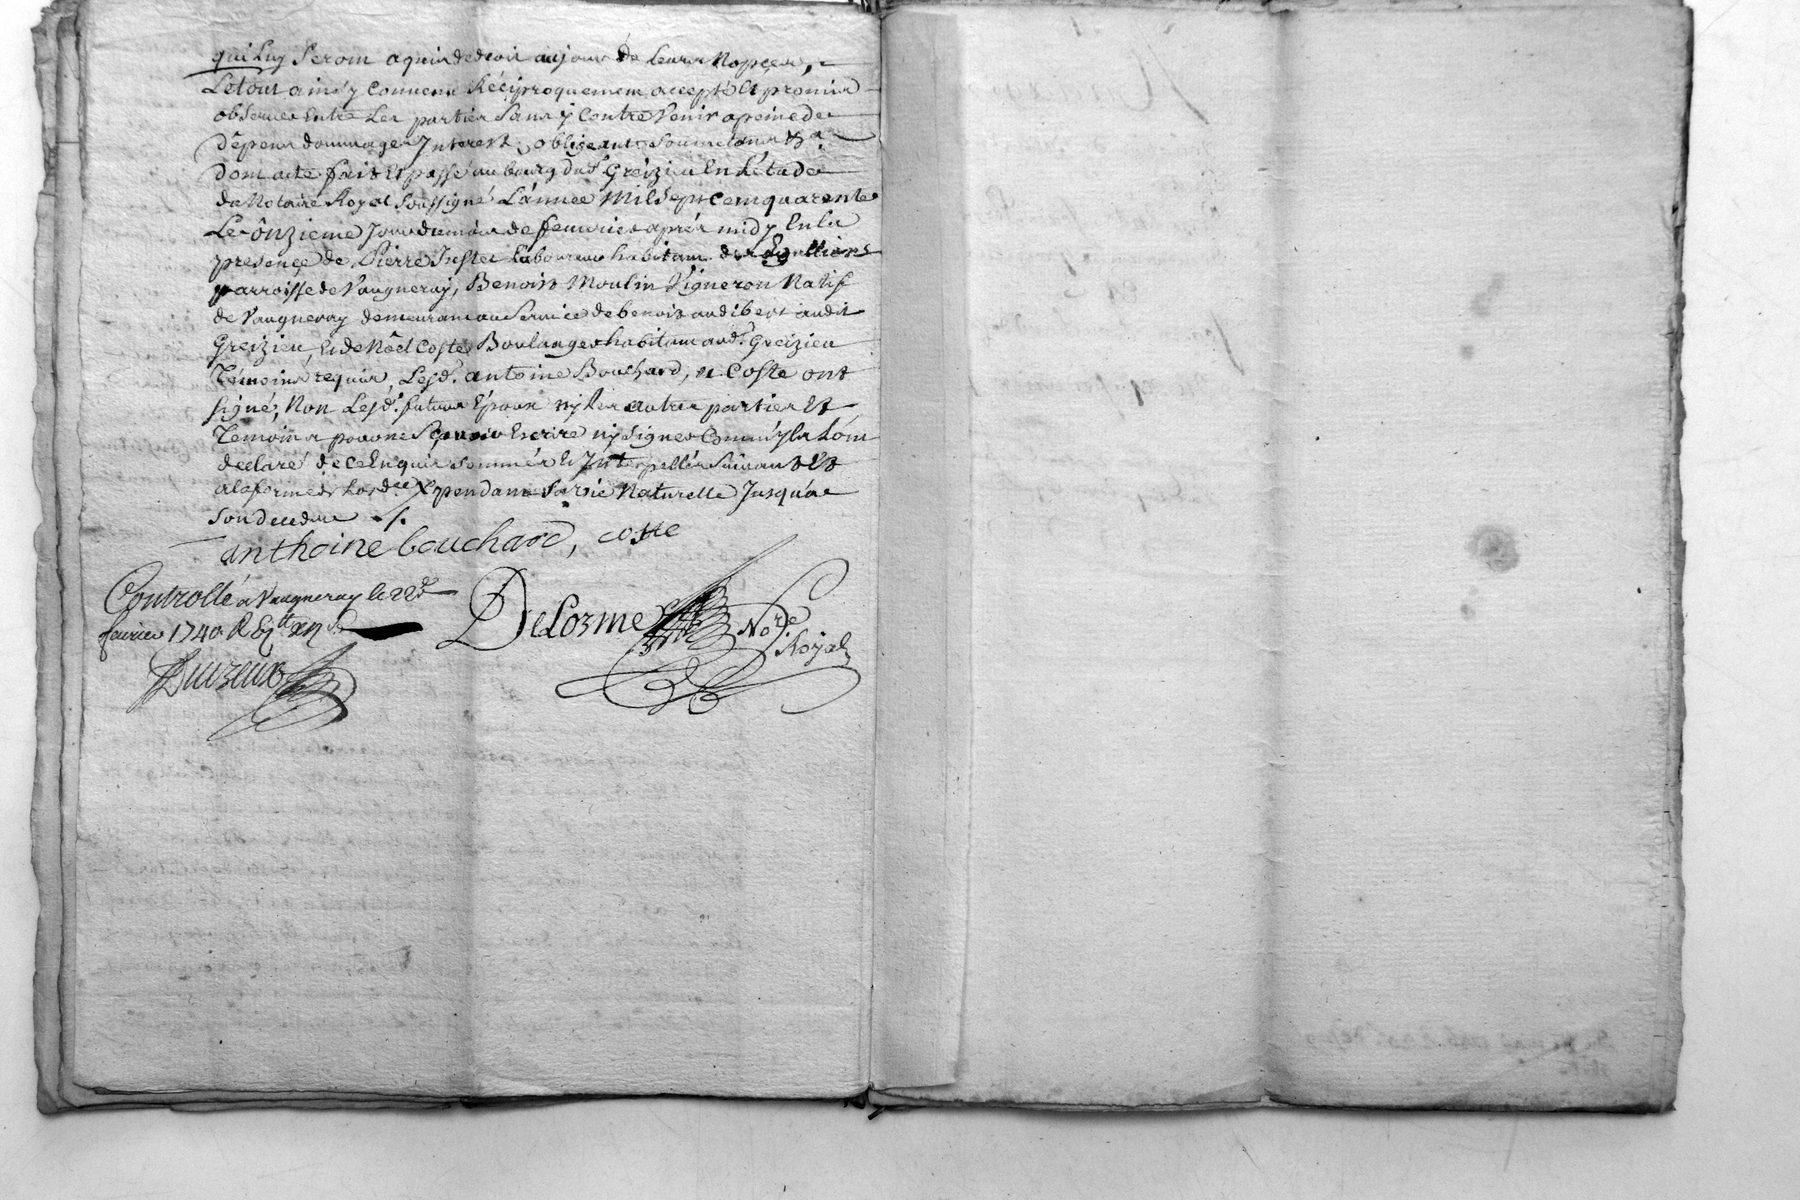 qui luy seront aquis de droit au jour de leurs Nopces,
Le tout ainsÿ convenu Réciproquement accepté Et promis
observer Entre Les parties Sans ÿ Contre Venir a peine de
dêpens dommages Interest, obligeants soumetants &a
Dont acte fait Et passé au bourg dudt Greizieu En L'étude
du Notaire Royal soussigné L'année Mil Sept Cent quarente
Le ônzieme Jour du mois de feuvrier aprés midy En la
presençe de Pierre laboureur habitant des
parroisse de Vaugneray, Benoist Moulin Vigneron Natif
de Vaugneray demeurant au Service de benoist audibert audit
Greizieu, Et de Nôel Coste Boulanger habitant audt Greizieu
Témoins requis, Lesd. antoine Bouchard, et Coste ont
signé, Non Lesd. futurs Epoux nÿ les autres parties Et
Temoins pour ne Sçavoir Escrire nÿ signer Comm'ÿls L'ont
declaré de ce Enquis sommés Et Interpellés Suivant Et
a la forme de Lordce X pendant sa vie Naturelle Jusqu'ae
son deceds
anthoine bouchard, coste
Controllé a Vaugneray le 22d
feurier 1740 R
DeLorme Nore
Royal